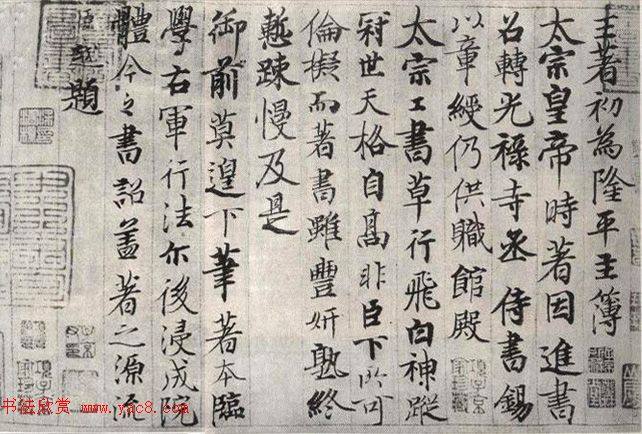 王著初為隆平主簿
太宗皇帝時著因進書
召轉光祿寺丞侍書錫
以章綬仍供職館殿
太宗工書草行飛白神蹤
冠世天格自高非臣下所可
倫擬而著書雖豐妍熟終
慙踈慢及是
御前莫遑下筆著本臨
學右軍行法尔後浸成院
體今之書詔盖著之源流
題
书法欣赏 www.yac8.com